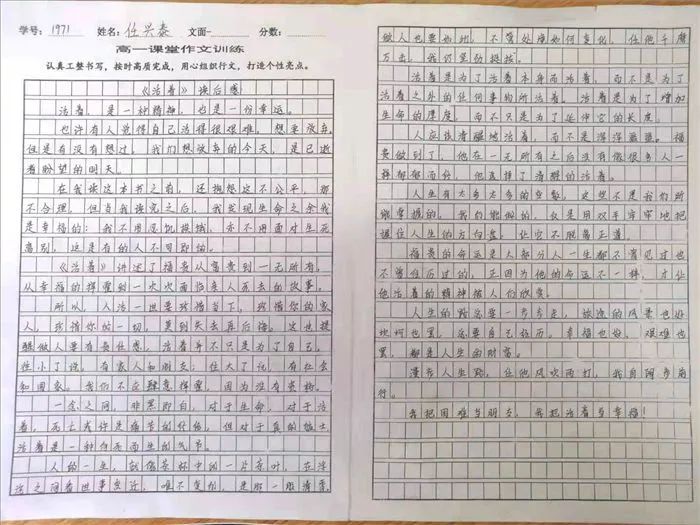 学号: 1971 姓名: 任兴泰 文面- 分数:
高一课堂作文训练
认真工整书写,按时高质完成,用心组织行文,打造个性亮点。
《活着》读后感
活着,是一种精神,也是一份幸运。
也许有人觉得自己活得很艰难,想要放弃,
但是有没有想过,我们想放弃的今天,是已逝
者盼望的明天。
在我读这本书之前,还抱怨这不公平,那
不合理。但当我读完之后,我发现生命之余我
是幸福的:我不用忍饥挨饿,亦不用面对生死
离别,这是有的人不可即的。
《活着》讲述了福贵从富贵到一无所有,
从幸福的挥霍到一次次面临亲人离去的故事。
所以,人活一世要珍惜当下,珍惜你的家
人,珍惜你的一切,莫到失去再后悔。这也提
醒做人要有责任感,活着并不只是为了自己。
往小了说,有家人和朋友;往大了说,有社会
和国家。我们不应肆意挥霍,因为没有资格。
一念之间,非黑即白,对于生命,对于活
着,而亡或许是痛苦的终结,但对于真的
活着是一种向死而生的气节。
人的一生,就像茶杯中的一片茶叶,在浮
沉之间看世事变迁,唯不变的,是那一股清香,
做人也要如此,不管处境如何变化,任他千磨
万击,我仍坚劲挺拔。
活着是为了活着本身而活着,而不是为了
活着之外的任何事物所活着。活着是为了增加
生命的厚度,而不只是为了延伸它的长度。
人应该清醒地活着,而不是浑浑噩噩。福
贵做到了,他在一无所有之后没有像很多人一
样郁郁而终,他选择了清醒的活着。
人生有太多太多的变数,这些不是我们所
能掌握的。我们能做的,仅是用双手牢牢地把
握住人生的方向盘,让它不脱离正道。
福贵的命运是大部分人一生都不曾见过也
不曾经历过的,正因为他的命运不一样,才让
他活着的精神被人们欣赏。
人生的路总要一步一步走,旅途的风景也好
坎坷也罢,总要自己经历。幸福也好,艰难也
罢,都是人生的财富。
漫步人生路,任他风吹雨打,我自阔步前
行。
我把困难当朋友,我把活着当幸福!